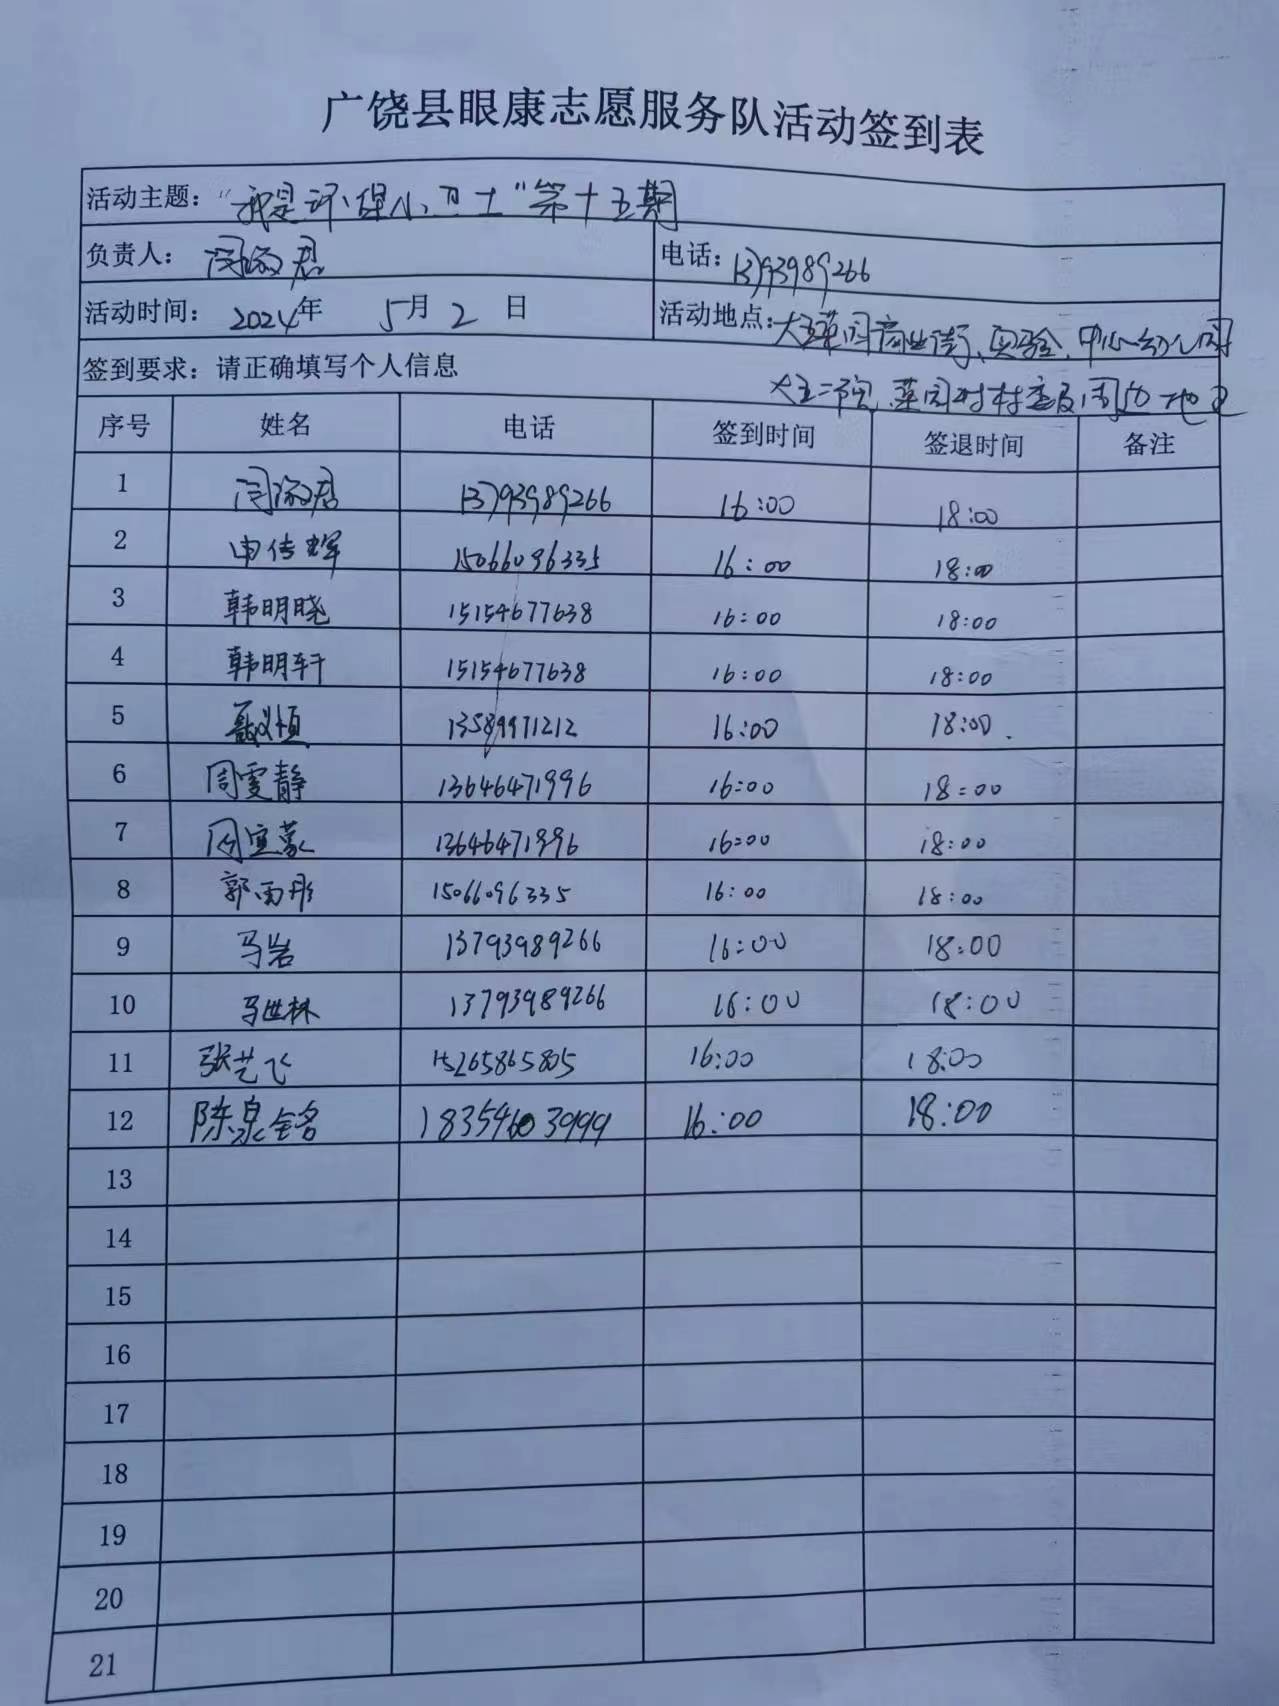 广饶县眼康志愿服务队活动签到表
活动主题：“我是环保小卫士”第十五期
负责人：闫淑君 电话：13793989266
活动时间：2024年 5月2 日 活动地点：大王菜园商业街、实验、中心幼儿园
签到要求：请正确填写个人信息 大王二院、菜园村村委及周边地
序号 姓名 电话 签到时间 签退时间 备注
1 闫淑君 13793989266 16:00 18:00
2 申传辉 15066096335 16:00 18:00
3 韩明晓 15154677638 16:00 18:00
4 韩明轩 15154677638 16:00 18:00
5 聂义恒 13589971212 16:00 18:00
6 周雯静 13646471996 16:00 18:00
7 周宜蒙 13646471996 16:00 18:00
8 郭雨彤 15066096335 16:00 18:00
9 马岩 13793989266 16:00 18:00
10 马世林 13793989266 16:00 18:00
11 张艺飞 15265865805 16:00 18:00
12 陈泉铭 18354603999 16:00 18:00
13
14
15
16
17
18
19
20
21